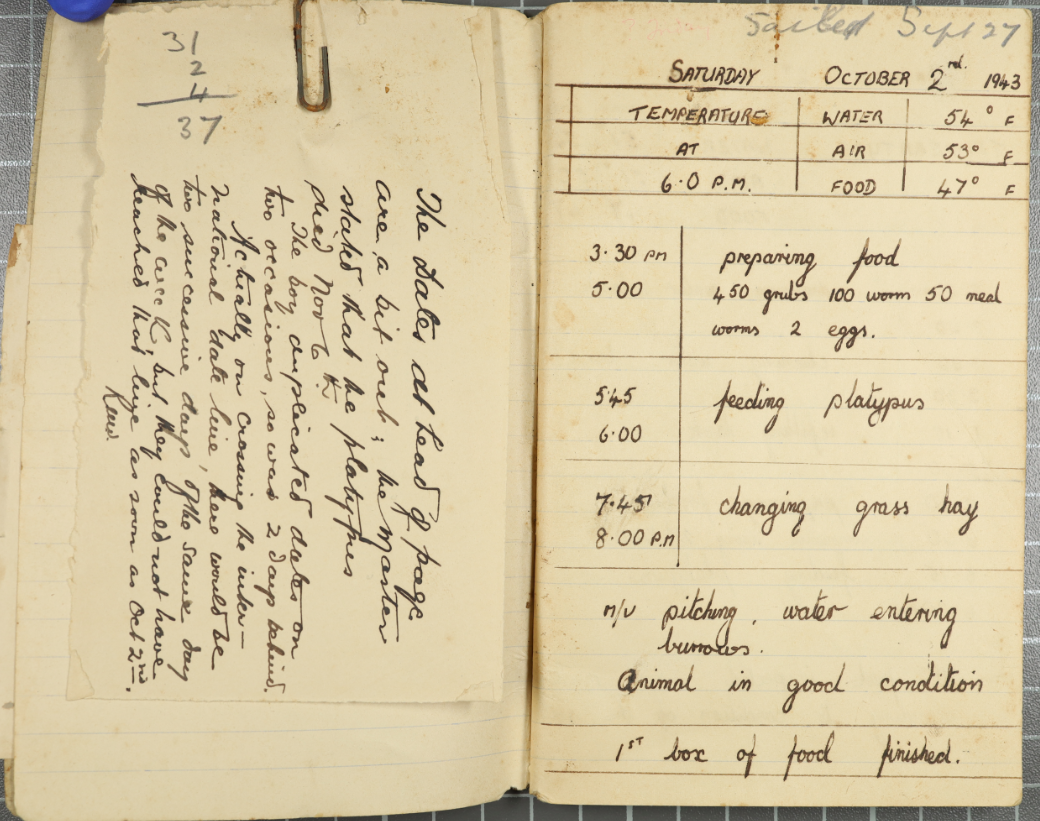 31
2
4
37
The dates at head of page
are a bit out; the Master
stated that the platypus
died Nov 6th.
The boy duplicated dates on
two occasions, so was 2 days behind.
Actually on crossing the inter-
national date line, there would be
two successive days, of the same day
of the week but they could not have
reached that line as soon as Oct 2nd.
Sailed Sept 27
SATURDAY OCTOBER 2nd. 1943
TEMPERATURE WATER 54° F
AT AIR 53° F
6.0 P.M. FOOD 47° F
3.30 PM preparing food
5.00 450 grubs 100 worm 50 meal
worms 2 eggs.
5.45 feeding platypus
6.00
7.45 changing grass hay
8.00 P.M
M/V pitching, water entering
burrows.
Animal in good condition
1ST box of food finished.